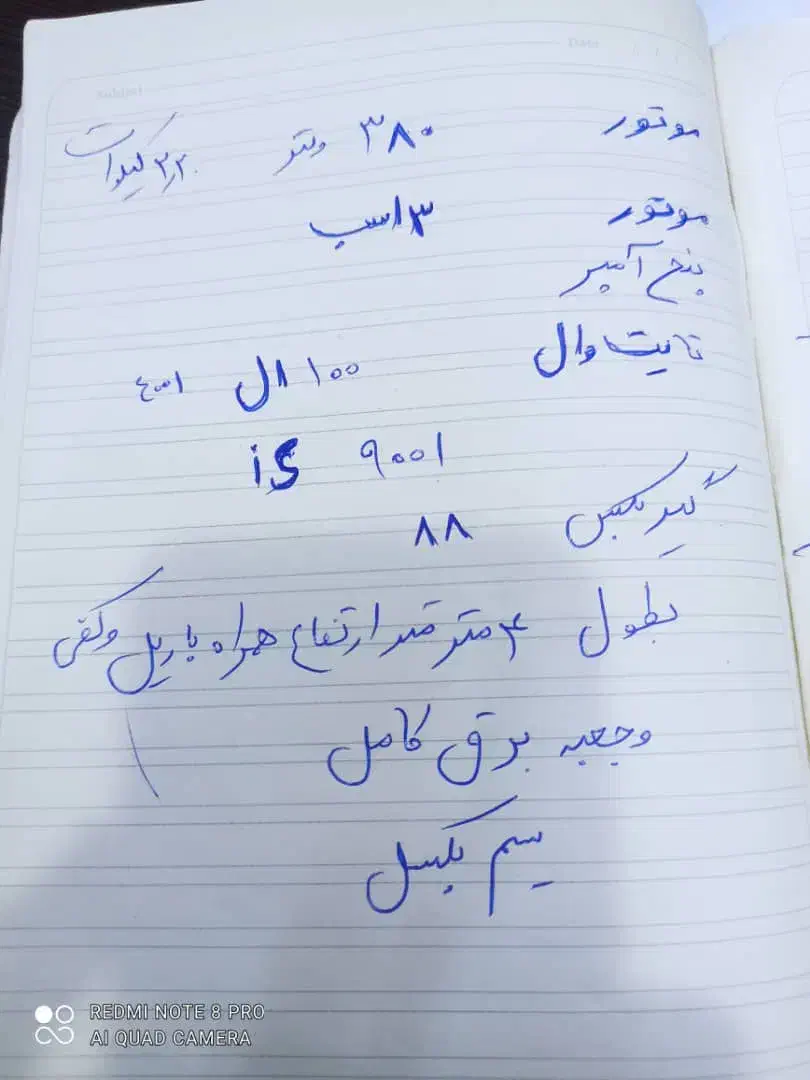 Subject
Date
موتور ۳۸۰ ولتر ۲٫۲۰ کیلوات
موتور ۳ اسب
پنج آمپر
تایت وال ۱۰۰ ال
is ۹۰۰۱
گیربکس ۸۸
بطول ۴ متر قد ارتفاع همراه با ریل و کفی
و جعبه برق کامل
سیم بکسل
REDMI NOTE 8 PRO
AI QUAD CAMERA